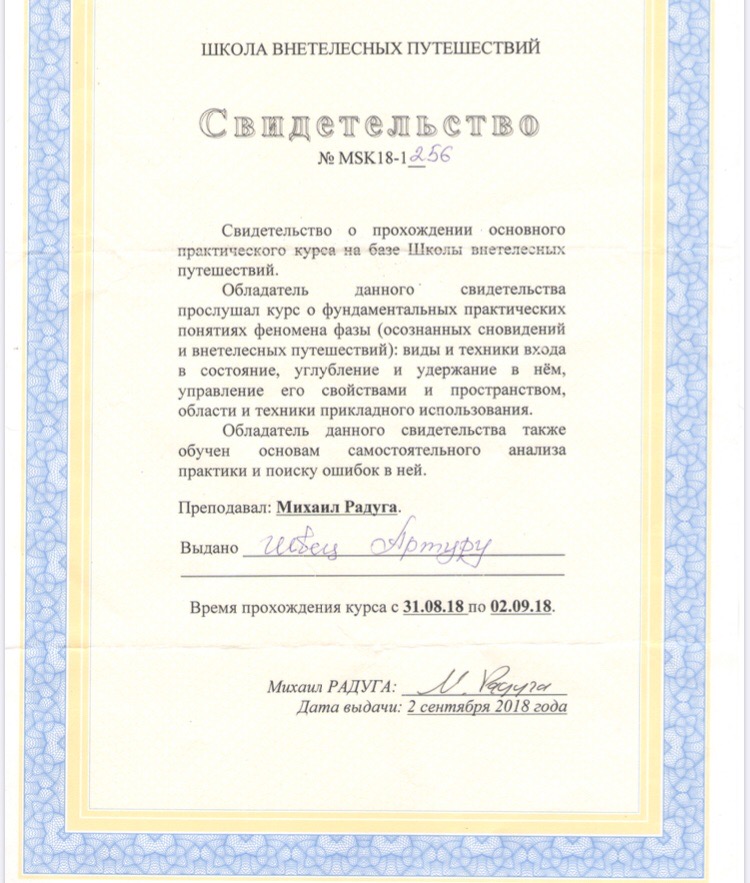 ШКОЛА ВНЕТЕЛЕСНЫХ ПУТЕШЕСТВИЙ
Свидетельство
№ MSK18-1256
Свидетельство о прохождении основного
практического курса на базе Школы внетелесных
путешествий.
Обладатель данного свидетельства
прослушал курс о фундаментальных практических
понятиях феномена фазы (осознанных сновидений
и внетелесных путешествий): виды и техники входа
в состояние, углубление и удержание в нём,
управление его свойствами и пространством,
области и техники прикладного использования.
Обладатель данного свидетельства также
обучен основам самостоятельного анализа
практики и поиску ошибок в ней.
Преподавал: Михаил Радуга.
Выдано Швец Артуру
Время прохождения курса с 31.08.18 по 02.09.18.
Михаил РАДУГА: М. Радуга
Дата выдачи: 2 сентября 2018 года